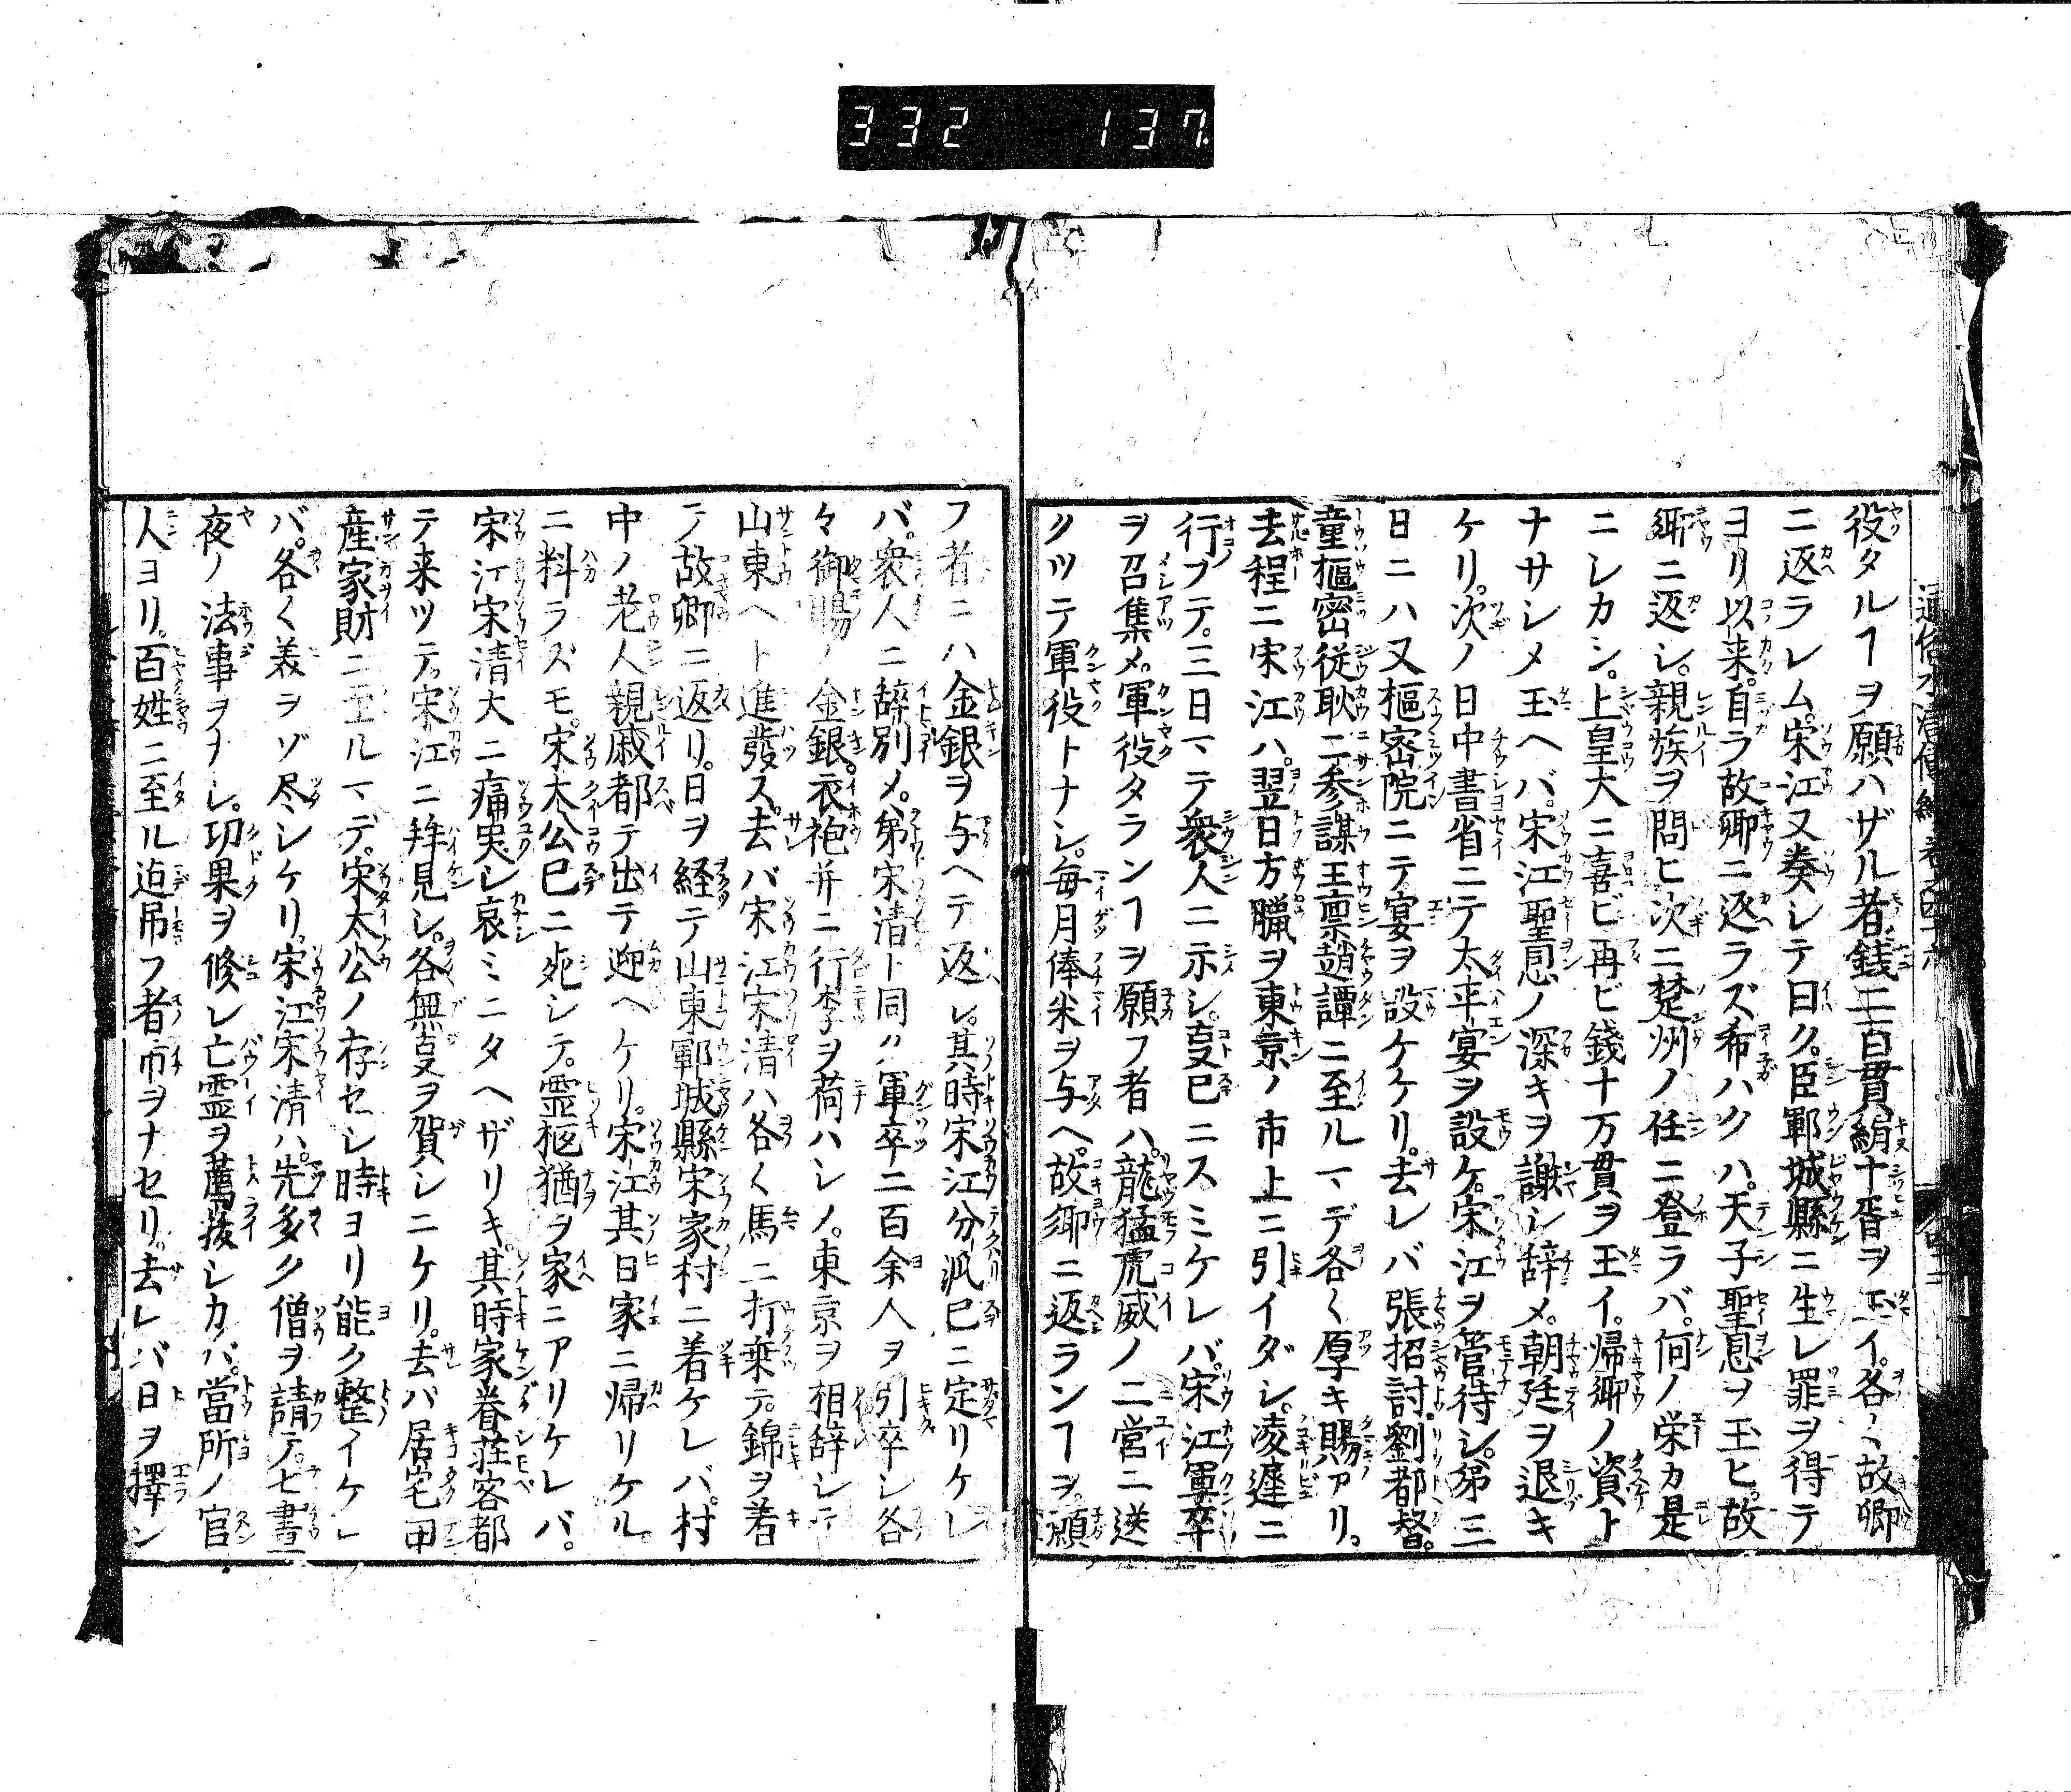 332 137
役タルヿヲ願ハザル者銭二百貫絹十疋ヲ玉イ。各〻故郷
ニ返ラレム。宋江又奏シテ曰ク。臣鄆城縣ニ生レ罪ヲ得テ
ヨリ以来。自ラ故郷ニ返ラズ希ハクハ。天子聖恩ヲ玉ヒ。故
郷ニ返シ。親族ヲ問ヒ次ニ楚州ノ任ニ登ラバ。何ノ栄カ是
ニシカン。上皇大ニ喜ビ再ビ銭十万貫ヲ玉イ。帰郷ノ資ト
ナサレメ玉ヘバ。宋江聖恩ノ深キヲ謝シ辞メ。朝廷ヲ退キ
ケリ。次ノ日中書省ニテ太平宴ヲ設ケ。宋江ヲ管待シ。第三
日ニハ又樞密院ニテ宴ヲ設ケケリ。去レバ張招討。劉都督。
童樞密従耿二参謀王禀趙譚ニ至ルマデ各〱厚キ賜アリ。
去程ニ宋江ハ。翌日方臘ヲ東京ノ市上ニ引イダシ。凌遅ニ
行フテ。三日マテ衆人ニ示シ。事已ニスミケレバ。宋江軍卒
ヲ召集メ。軍役タランヿヲ願フ者ハ。龍猛虎威ノ二営ニ送
クツテ軍役トナシ。毎月俸米ヲ与ヘ。故郷ニ返ランヿヲ。願
フ者ニハ金銀ヲ与ヘテ返シ。其時宋江分派已ニ定リケレ
バ。衆人ニ辞別メ。弟宋清ト同ク軍卒二百余人ヲ引卒シ各
々御賜ノ金銀。衣袍并ニ行李ヲ荷ハシメ。東京ヲ相辞シテ
山東ヘト進發ス。去バ宋江宋清ハ各〱馬ニ打乗テ。錦ヲ着
テ故郷ニ返リ。日ヲ経テ山東鄆城縣宋家村ニ着ケレバ。村
中ノ老人親戚都テ出テ迎ヘケリ。宋江其日家ニ帰リケル。
ニ料ラズモ。宋太公已ニ死シテ。霊柩猶ヲ家ニアリケレバ。
宋江宋清大ニ痛哭シ哀ミニタヘザリキ。其時家眷荘客都
テ来ツテ。宋江ニ拜見シ。各無事ヲ賀シニケリ。去バ居宅田
産家財ニ至ルマデ。宋太公ノ存セシ時ヨリ能ク整イケレ
バ。各〱義ヲゾ尽シケリ。宋江宋清ハ。先多ク僧ヲ請テ。七晝
夜ノ法事ヲナシ。功果ヲ修シ亡霊ヲ薦拔シカバ。當所ノ官
人ヨリ。百姓ニ至ル迠吊フ者市ヲナセリ。去レバ日ヲ擇ン